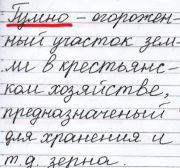 Гумно – огорожен-
ный участок зем-
ли в крестьянс-
ком хозяйстве,
предназначеный
для хранения и
т.д. зерна.